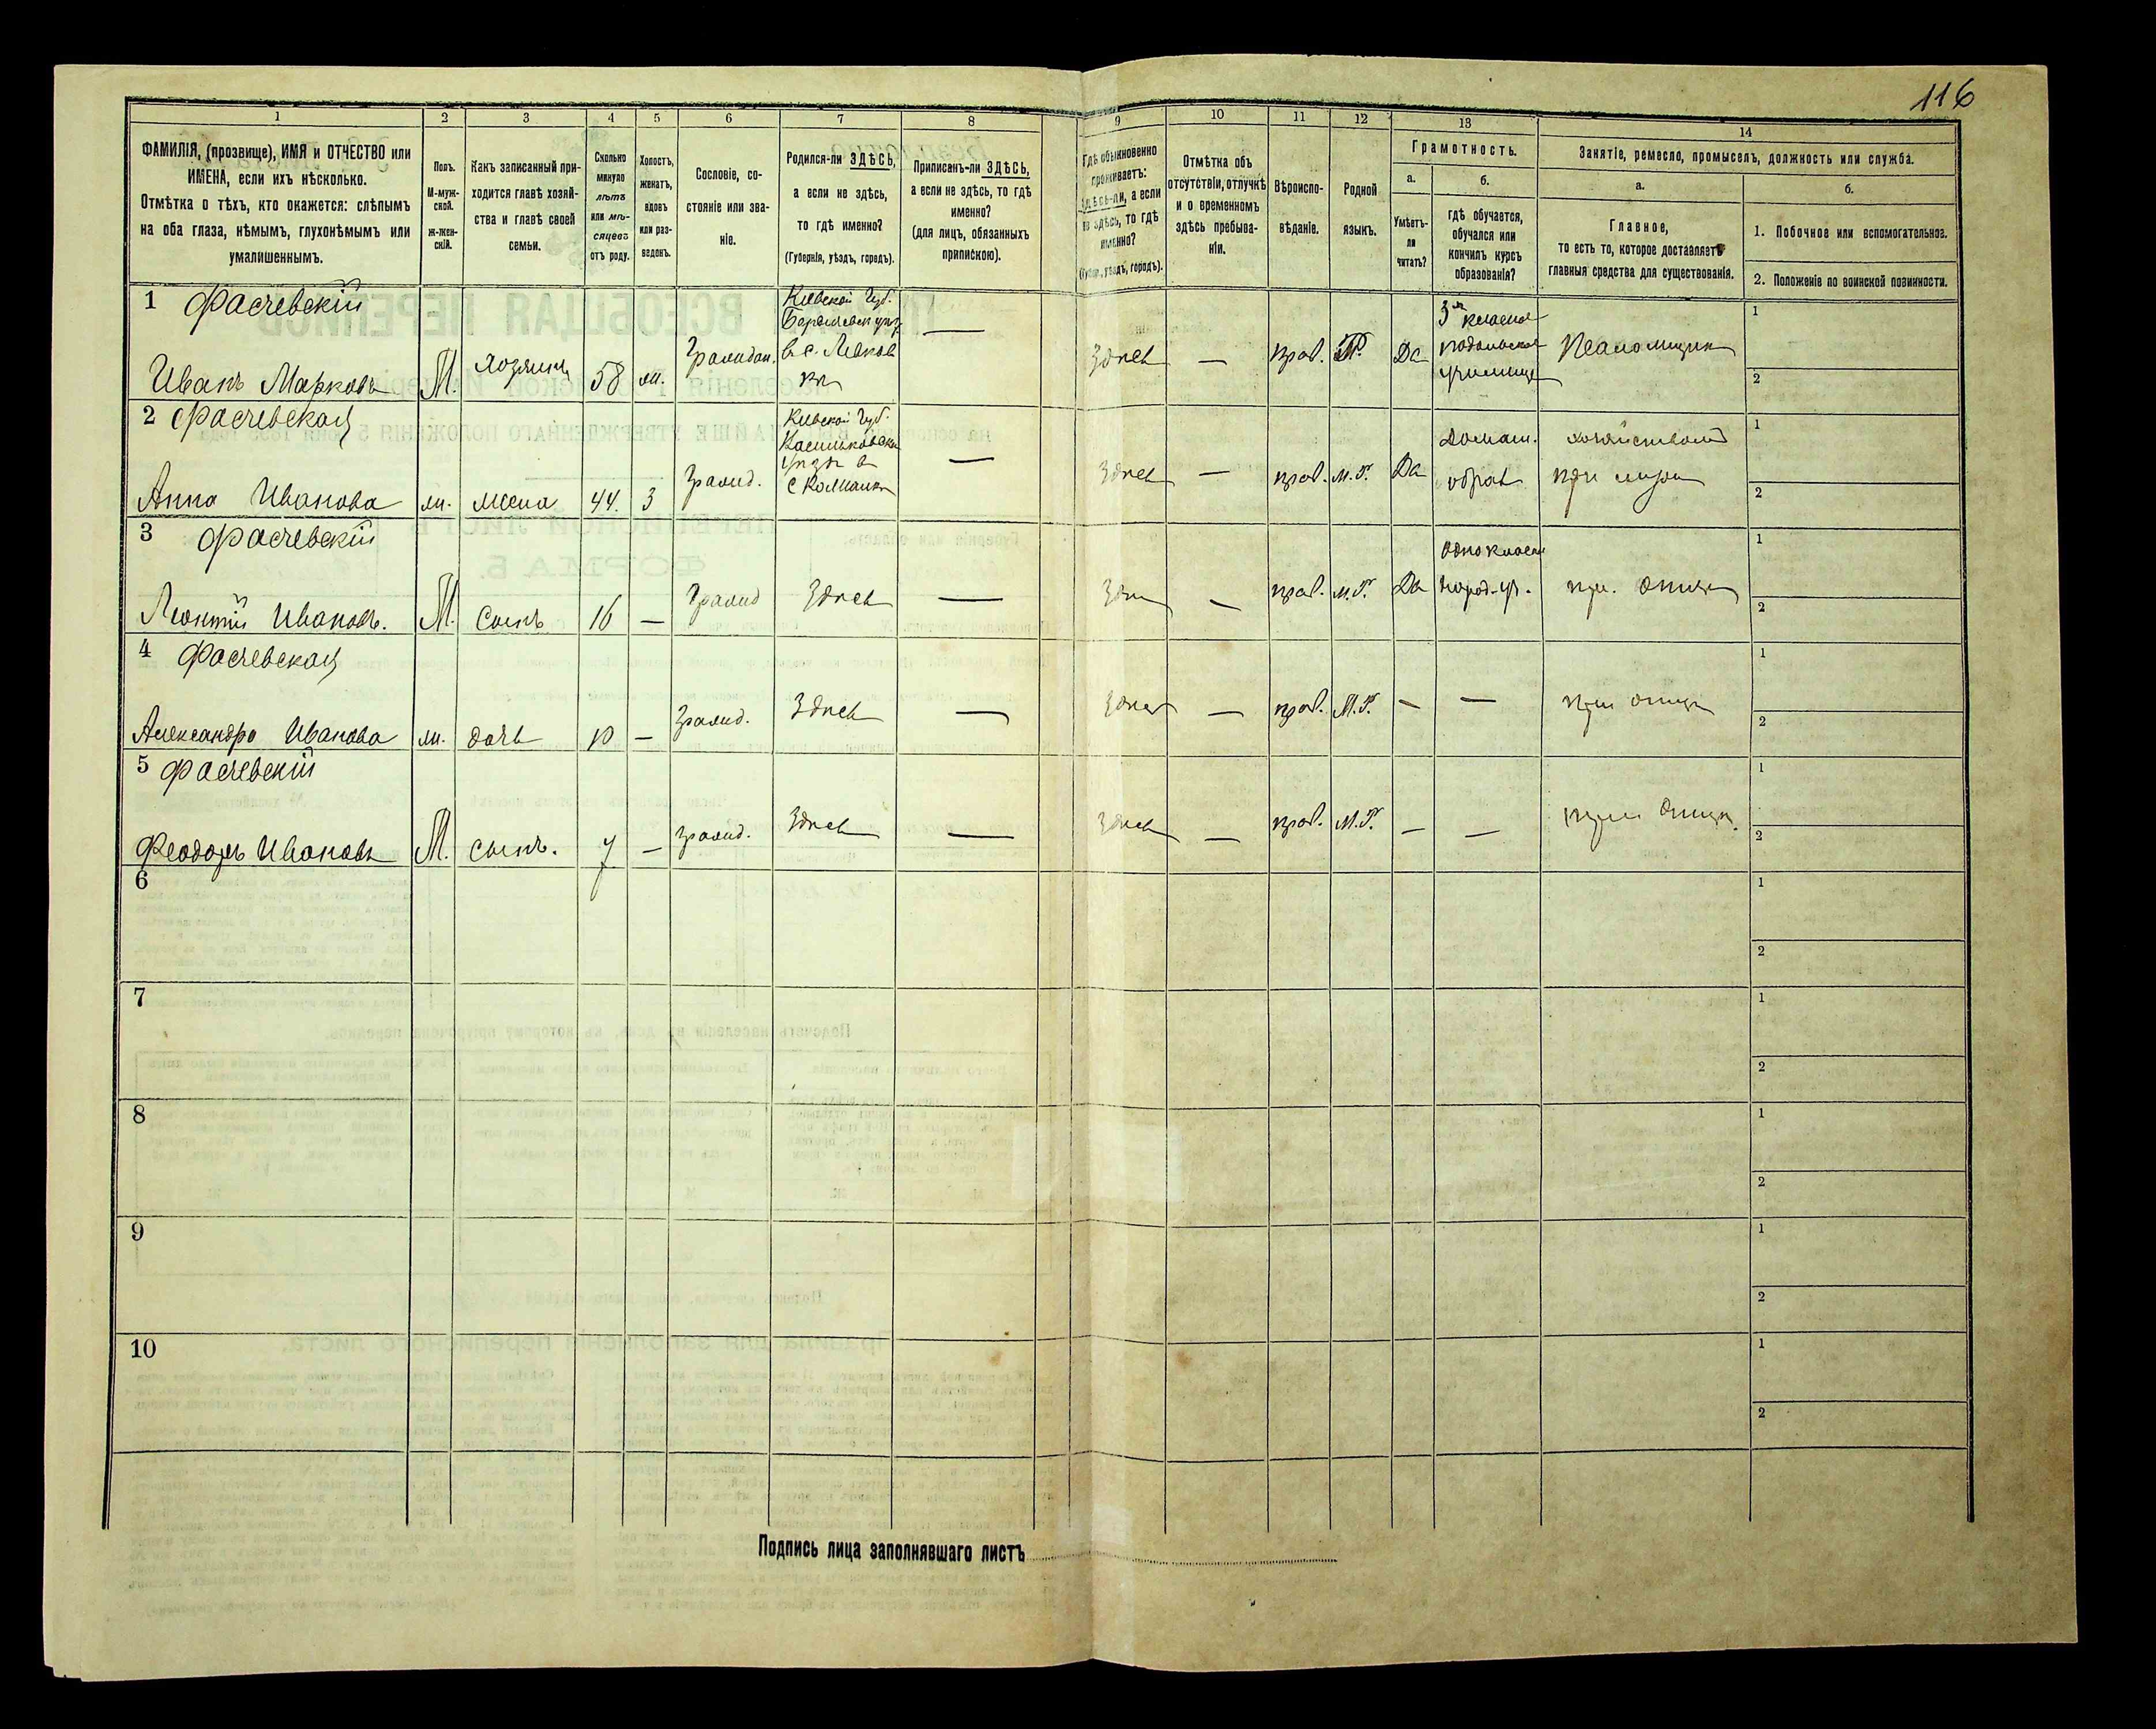 116
1 2 3 4 5 6 7 8 9 10 11 12 13 14
ФАМИЛІЯ, (прозвище), ИМЯ и ОТЧЕСТВО или
ИМЕНА, если ихъ нѣсколько.
Отмѣтка о тѣхъ, кто окажется: слѣпымъ
на оба глаза, нѣмымъ, глухонѣмымъ или
умалишеннымъ.
Полъ.
М-муж-
ской.
ж-жен-
скій.
Какъ записанный при-
ходится главѣ хозяй-
ства и главѣ своей
семьи.
Сколько
минуло
лѣтъ
или мѣ-
сяцевъ
отъ роду.
Холостъ,
женатъ,
вдовъ
или раз-
веденъ.
Сословіе, со-
стояніе или зва-
ніе.
Родился-ли ЗДѢСЬ,
а если не здѣсь,
то гдѣ именно?
(Губернія, уѣздъ, городъ).
Приписанъ-ли ЗДѢСЬ,
а если не здѣсь, то гдѣ
именно?
(для лицъ, обязанныхъ
припискою).
Гдѣ обыкновенно
проживаетъ:
здѣсь-ли, а если
не здѣсь, то гдѣ
именно?
(Губерн., уѣздъ, городъ).
Отмѣтка объ
отсутствіи, отлучкѣ
и о временномъ
здѣсь пребыва-
ніи.
Вѣроиспо-
вѣданіе.
Родной
языкъ.
Грамотность.
а.
Умѣетъ-
ли
читать?
б.
гдѣ обучается,
обучался или
кончилъ курсъ
образованія?
Занятіе, ремесло, промыселъ, должность или служба.
а.
Главное,
то есть то, которое доставляетъ
главныя средства для существованія.
б.
1. Побочное или вспомогательное.
2. Положеніе по воинской повинности.
1 Фасчевскій
Иванъ Марковъ М. хозяинъ 58 ж.
Кіевской Губ.
—
Здѣсь — прав. Да
3х класное
подольское
училище
Псаломщик
1
2
2 Фасчевская
Анна Иванова ж. жена 44. з
гражд.
Кіевской Губ.
—
Здѣсь — прав. М.Р. Да
домаш.
образ
хозяйством
при муже
1
2
3 Фасчевскій
Леонтій Ивановъ. М. сынъ 16 — гражд Здѣсь — — прав. М.Р. Да
однокласн
народ. уч.
при. отце
1
2
4 Фасчевская
Александра Иванова ж. дочь 10 — гражд. Здѣсь — Здѣсь — прав. М.Р. — — при отце
1
2
5 Фасчевскій
Феодоръ Ивановъ М. сынъ. 7 — гражд. Здѣсь — Здѣсь — прав. М.Р. — — при отце.
1
2
6
1
2
7
1
2
8
1
2
9
1
2
10
1
2
Подпись лица заполнявшаго листъ